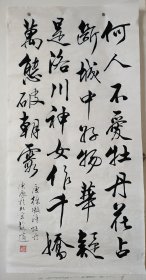 何人不爱牡丹花占
断城中好物華疑
是洛川神女作千嬌
萬態破朝霞
唐徐凝詩